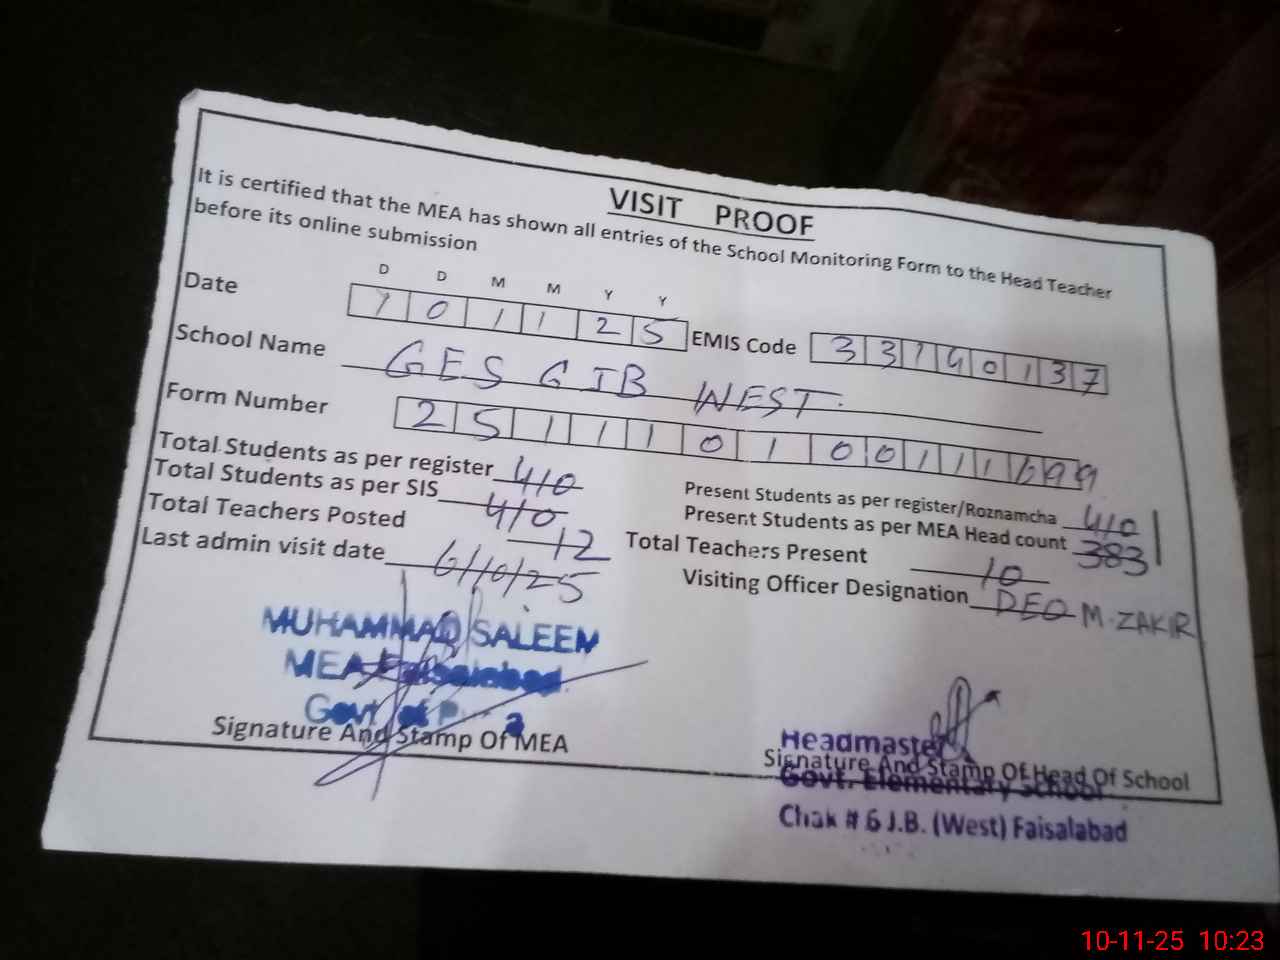 VISIT PROOF
It is certified that the MEA has shown all entries of the School Monitoring Form to the Head Teacher
before its online submission
D D M M Y Y
Date 1 0 1 1 2 5 EMIS Code 3 3 1 4 0 1 3 7
School Name GES 6 JB WEST.
Form Number 2 5 1 1 1 0 1 0 0 1 1 1 6 9 9
Total Students as per register 410 Present Students as per register/Roznamcha 410
Total Students as per SIS 410 Present Students as per MEA Head count 383
Total Teachers Posted 12 Total Teachers Present 10
Last admin visit date 6/10/25 Visiting Officer Designation DEO M. ZAKIR
MUHAMMAD SALEEM
MEA Faisalabad.
Govt of
Signature And Stamp Of MEA
Headmaster
Signature And Stamp Of Head Of School
Govt. Elementary School
Chak # 6 J.B. (West) Faisalabad
10-11-25 10:23